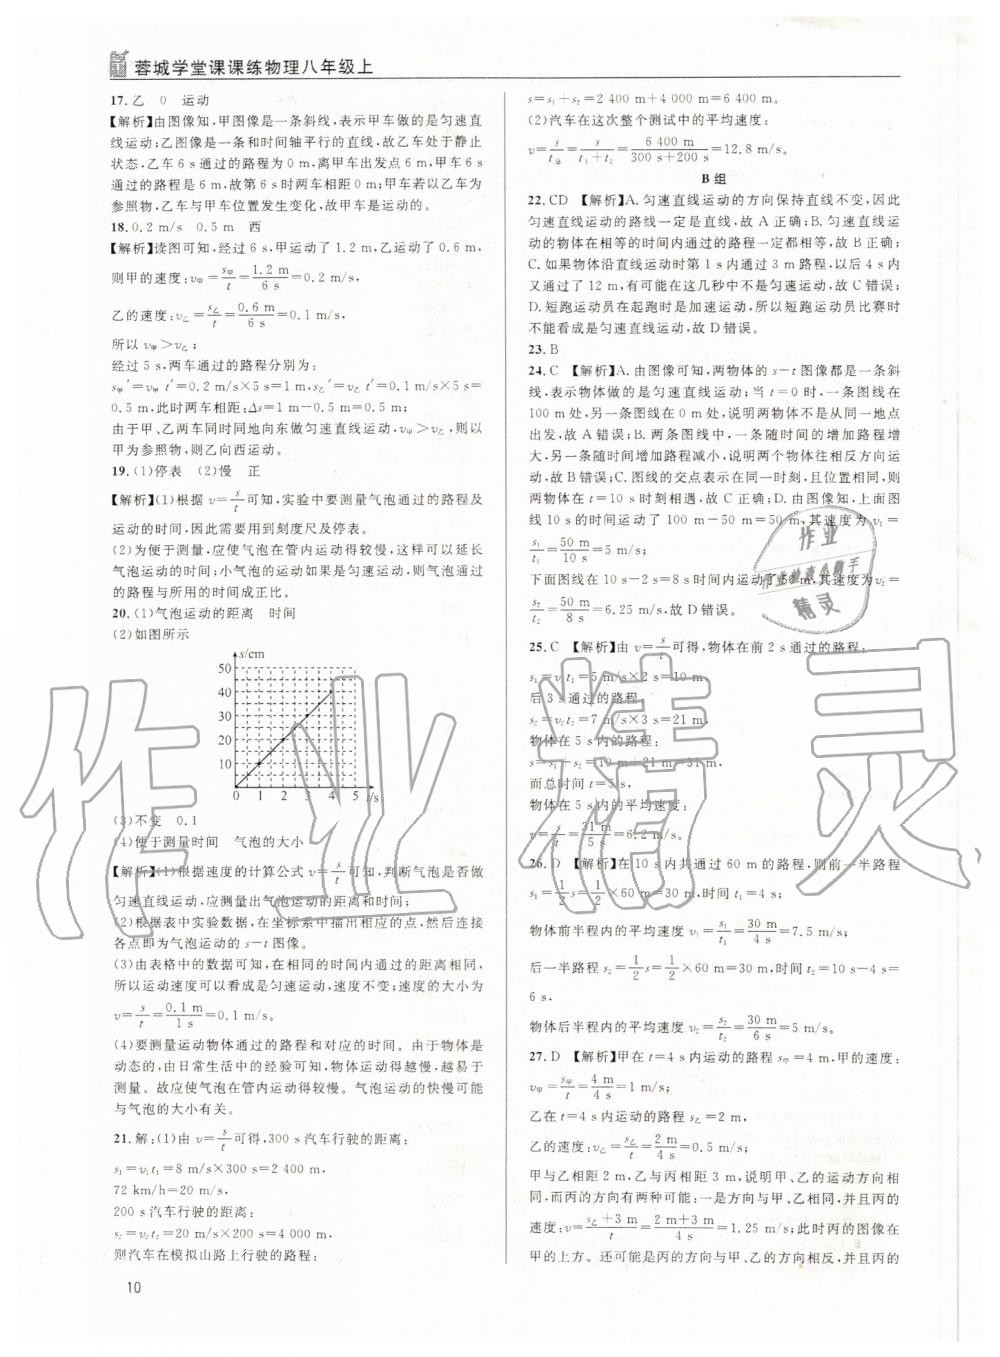 蓉城学堂课课练物理八年级上
17.乙　0　运动
【解析】由图像知,甲图像是一条斜线,表示甲车做的是匀速直
线运动;乙图像是一条和时间轴平行的直线,故乙车处于静止
状态,乙车 6 s 通过的路程为 0 m,离甲车出发点 6 m,甲车 6 s
通过的路程是 6 m,故第 6 s 时两车相距 0 m;甲车若以乙车为
参照物,乙车与甲车位置发生变化,故甲车是运动的。
18.0.2 m/s　0.5 m　西
【解析】读图可知,经过 6 s,甲运动了 1.2 m,乙运动了 0.6 m,
则甲的速度:v甲=s甲/t=1.2 m/6 s=0.2 m/s,
乙的速度:v乙=s乙/t=0.6 m/6 s=0.1 m/s,
所以 v甲>v乙;
经过 5 s,两车通过的路程分别为:
s甲′=v甲 t′=0.2 m/s×5 s=1 m,s乙′=v乙 t′=0.1 m/s×5 s=
0.5 m,此时两车相距:Δs=1 m-0.5 m=0.5 m;
由于甲、乙两车同时同地向东做匀速直线运动,v甲>v乙,则以
甲为参照物,则乙向西运动。
19.(1)停表　(2)慢　正
【解析】(1)根据 v=s/t可知,实验中要测量气泡通过的路程及
运动的时间,因此需要用到刻度尺及停表。
(2)为便于测量,应使气泡在管内运动得较慢,这样可以延长
气泡运动的时间;小气泡的运动如果是匀速运动,则气泡通过
的路程与所用的时间成正比。
20.(1)气泡运动的距离　时间
(2)如图所示
s/cm
50
40
30
20
10
0 1 2 3 4 5 t/s
(3)不变　0.1
(4)便于测量时间　气泡的大小
【解析】(1)根据速度的计算公式 v=s/t可知,判断气泡是否做
匀速直线运动,应测量出气泡运动的距离和时间;
(2)根据表中实验数据,在坐标系中描出相应的点,然后连接
各点即为气泡运动的 s-t 图像。
(3)由表格中的数据可知,在相同的时间内通过的距离相同,
所以运动速度可以看成是匀速运动,速度不变;速度的大小为
v=s/t=0.1 m/1 s=0.1 m/s。
(4)要测量运动物体通过的路程和对应的时间。由于物体是
动态的,由日常生活中的经验可知,物体运动得越慢,越易于
测量。故应使气泡在管内运动得较慢。气泡运动的快慢可能
与气泡的大小有关。
21.解:(1)由 v=s/t可得,300 s 汽车行驶的距离:
s₁=v₁t₁=8 m/s×300 s=2 400 m,
72 km/h=20 m/s,
200 s 汽车行驶的距离:
s₂=v₂t₂=20 m/s×200 s=4 000 m,
则汽车在模拟山路上行驶的路程:
10
s=s₁+s₂=2 400 m+4 000 m=6 400 m,
(2)汽车在这次整个测试中的平均速度:
v=s/t总=s/(t₁+t₂)=6 400 m/(300 s+200 s)=12.8 m/s。
B 组
22.CD　【解析】A.匀速直线运动的方向保持直线不变,因此
匀速直线运动的路线一定是直线,故 A 正确;B. 匀速直线运
动的物体在相等的时间内通过的路程一定都相等,故 B 正确;
C. 如果物体沿直线运动时第 1 s 内通过 3 m 路程,以后 4 s 内
又通过了 12 m,有可能在这几秒中不是匀速运动,故 C 错误;
D. 短跑运动员在起跑时是加速运动,所以短跑运动员比赛时
不能看成是匀速直线运动,故 D 错误。
23.B
24.C　【解析】A. 由图像可知,两物体的 s-t 图像都是一条斜
线,表示物体做的是匀速直线运动;当 t=0 时,一条图线在
100 m 处,另一条图线在 0 m 处,说明两物体不是从同一地点
出发,故 A 错误;B. 两条图线中,一条随时间的增加路程增
大,一条随时间增加路程减小,说明两个物体往相反方向运
动,故 B 错误;C. 图线的交点表示在同一时刻,且位置相同,则
两物体在 t=10 s 时刻相遇,故 C 正确;D. 由图像知,上面图
线 10 s 的时间运动了 100 m-50 m=50 m,其速度为 v₁=
s₁/t₁=50 m/10 s=5 m/s;
下面图线在 10 s-2 s=8 s 时间内运动了 50 m,其速度为 v₂=
s₂/t₂=50 m/8 s=6.25 m/s,故 D 错误。
25.C　【解析】由 v=s/t可得,物体在前 2 s 通过的路程:
s₁=v₁t₁=5 m/s×2 s=10 m,
后 3 s 通过的路程:
s₂=v₂t₂=7 m/s×3 s=21 m,
物体在 5 s 内的路程:
s=s₁+s₂=10 m+21 m=31 m,
而总时间 t=5 s,
物体在 5 s 内的平均速度:
v=s/t=31 m/5 s=6.2 m/s。
26.D　【解析】在 10 s 内共通过 60 m 的路程,则前一半路程
s₁=1/2s=1/2×60 m=30 m,时间 t₁=4 s;
物体前半程内的平均速度 v₁=s₁/t₁=30 m/4 s=7.5 m/s,
后一半路程 s₂=1/2s=1/2×60 m=30 m,时间 t₂=10 s-4 s=
6 s,
物体后半程内的平均速度 v₂=s₂/t₂=30 m/6 s=5 m/s。
27.D　【解析】甲在 t=4 s 内运动的路程 s甲=4 m,甲的速度:
v甲=s甲/t=4 m/4 s=1 m/s;
乙在 t=4 s 内运动的路程 s乙=2 m,
乙的速度:v乙=s乙/t=2 m/4 s=0.5 m/s,
甲与乙相距 2 m,乙与丙相距 3 m,说明甲、乙的运动方向相
同,而丙的方向有两种可能:一是方向与甲、乙相同,并且丙的
速度:v=(s乙+3 m)/t=(2 m+3 m)/4 s=1.25 m/s;此时丙的图像在
甲的上方。还可能是丙的方向与甲、乙的方向相反,并且丙的
作业精灵
作业
作业的清凉小帮手
精灵